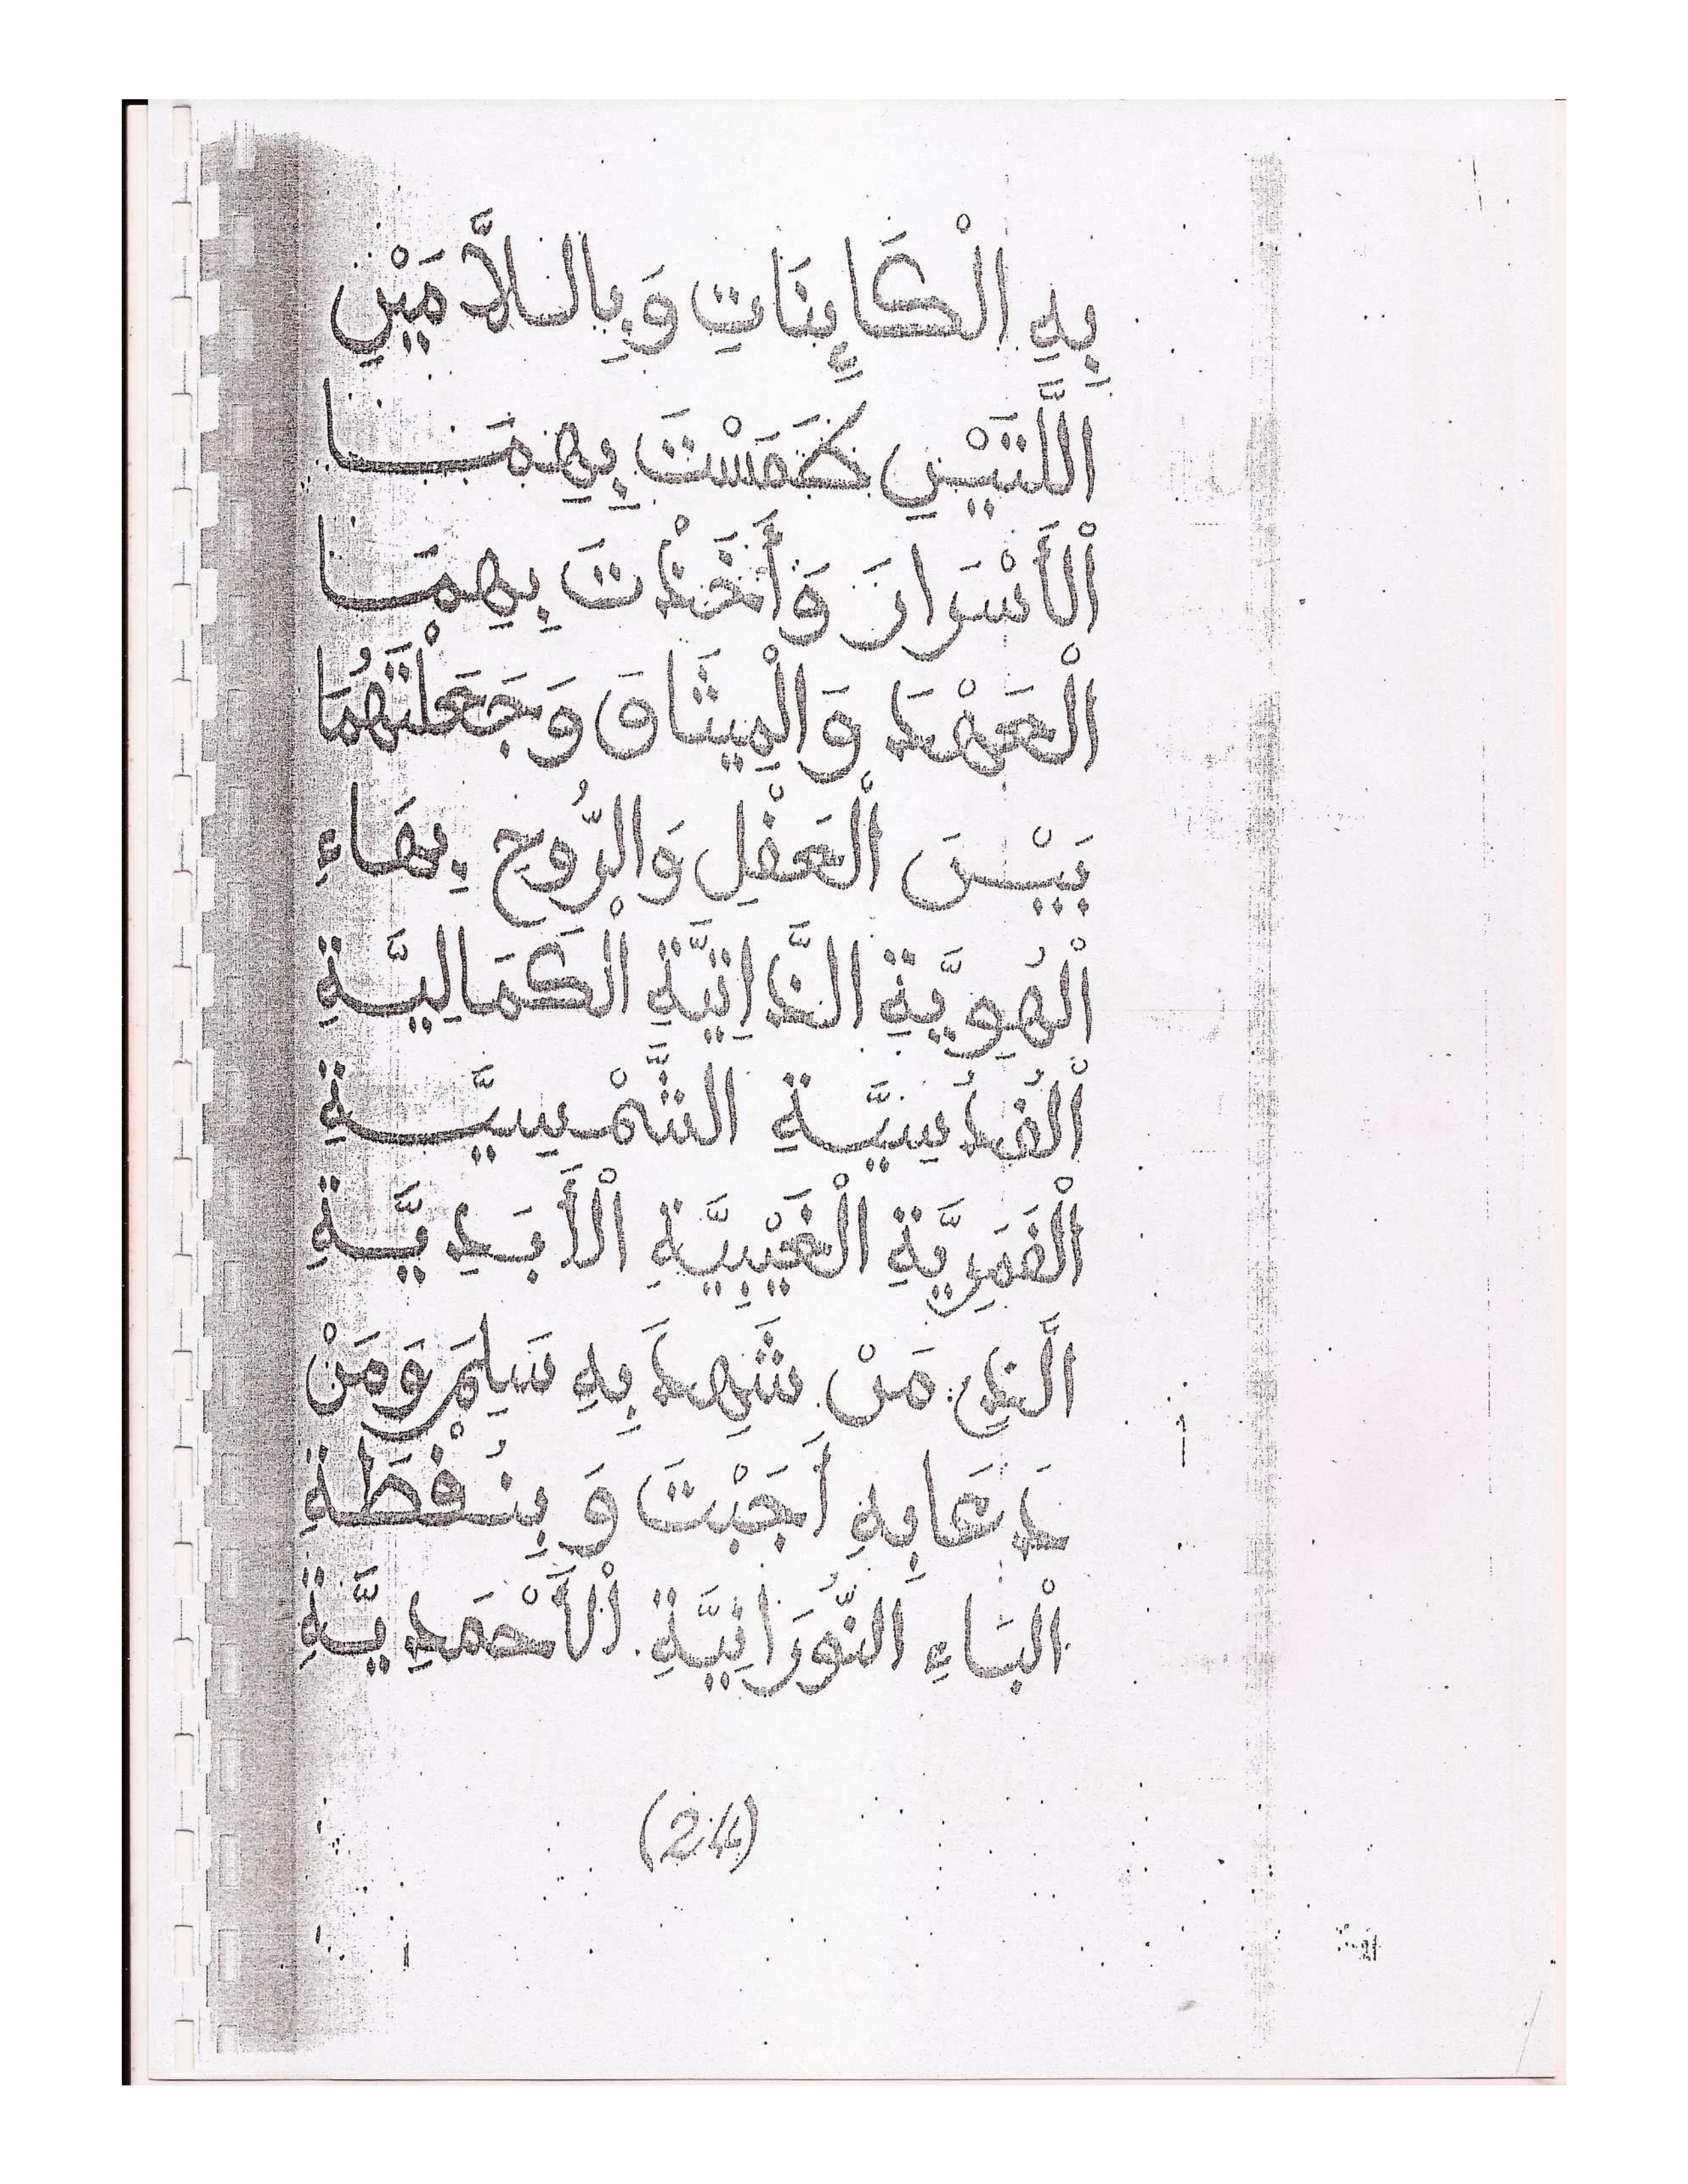 بِهِ الْكَايِنَاتِ وَبِاللَّامَيْنِ
اللَّتَيْنِ طَمَسْتَ بِهِمَا
الْأَسْرَارَ وَأَخَذْتَ بِهِمَا
الْعَهْدَ وَالْمِيثَاقَ وَجَعَلْتَهُمَا
بَيْنَ الْعَقْلِ وَالرُّوحِ بِهَاءِ
الْهُوِيَّةِ الذَّاتِيَّةِ الْكَمَالِيَّةِ
الْقُدُسِيَّةِ الشَّمْسِيَّةِ
الْقَمَرِيَّةِ الْغَيْبِيَّةِ الْأَبَدِيَّةِ
الَّذِي مَنْ شَهِدَ بِهِ سَلِمَ وَمَنْ
دَعَا بِهِ أَجَبْتَ وَبِنُقْطَةِ
الْبَاءِ النُّورَانِيَّةِ الْأَحْمَدِيَّةِ
(24)